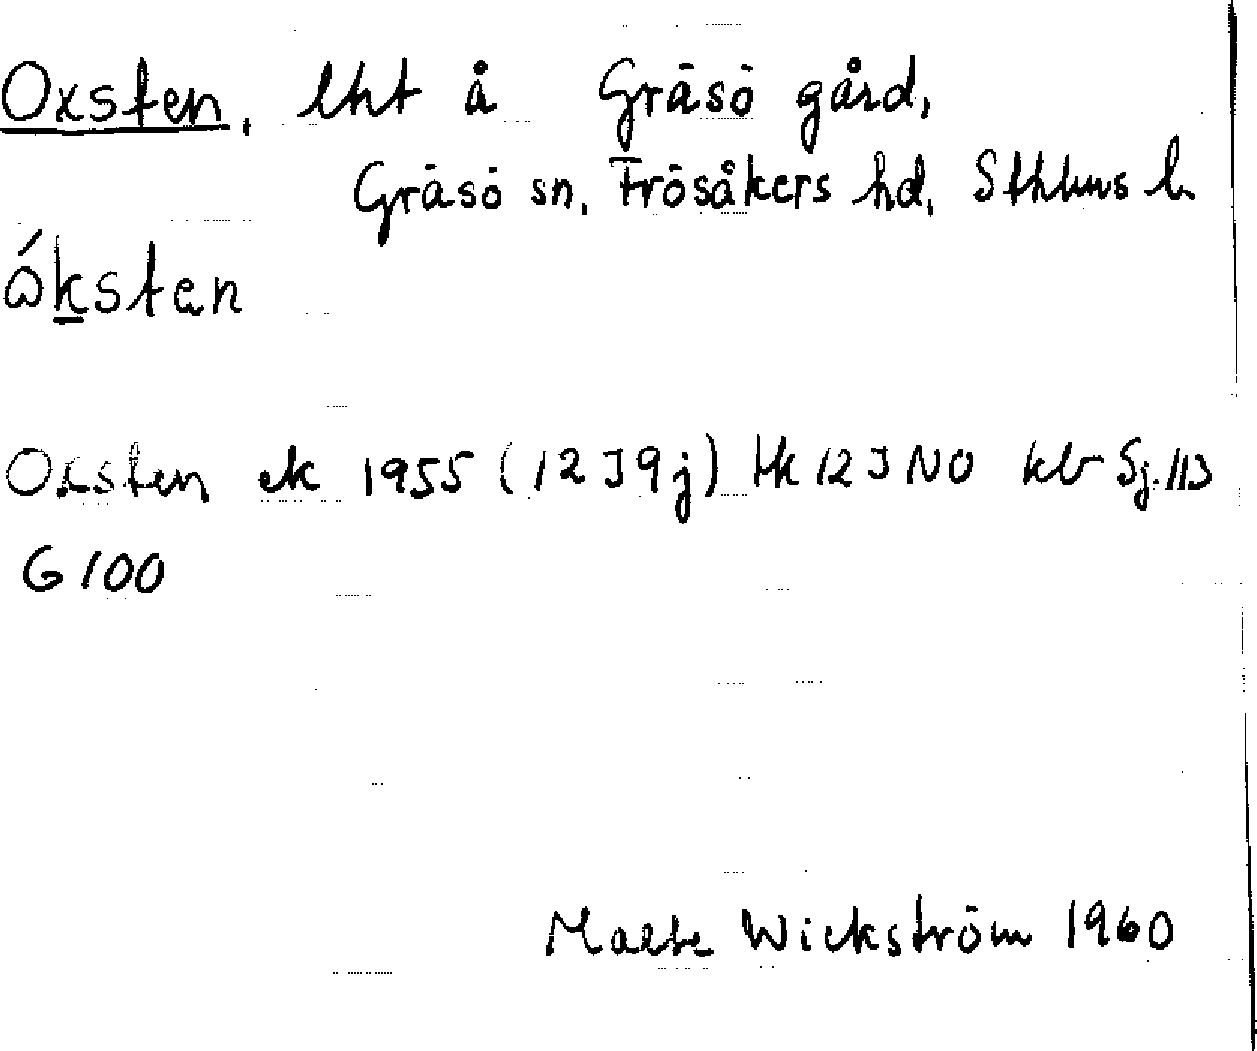 Oxsten, lht å Gräsö gård,
Gräsö sn, Frösåkers hd, Sthlms l.
ó̀ksten
Oxsten ek 1955 (12 I 9 j) Hk 12 I NO kbr Sj. 113
G 100
Malte Wickström 1960